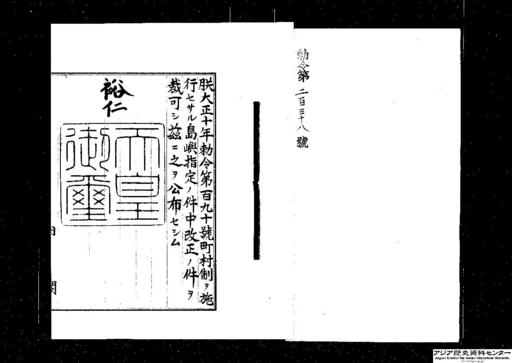 勅令第二百三十八號
朕大正十年勅令第百九十號町村制ヲ施
行セサル島嶼指定ノ件中改正ノ件ヲ
裁可シ茲ニ之ヲ公布セシム
裕仁
天皇
御璽
内
閣
アジア歴史資料センター
Japan Center for Asian Historical Records